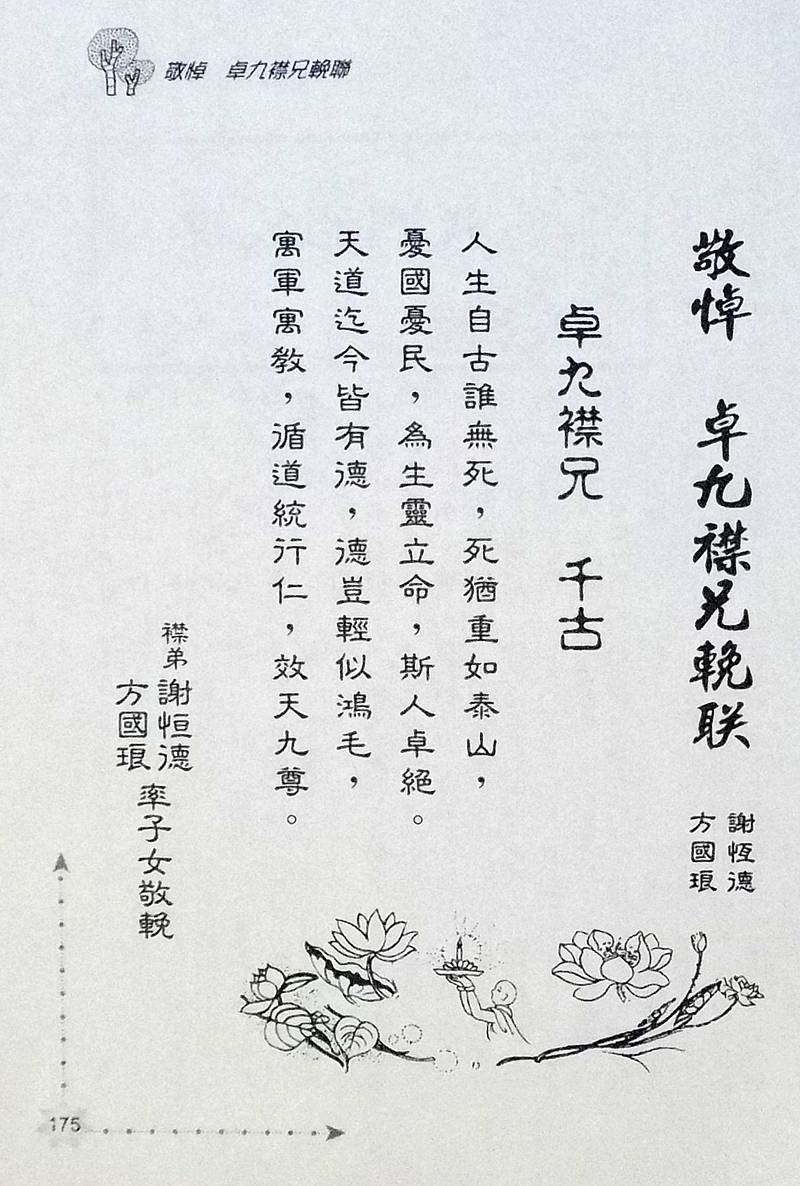 敬悼　卓九襟兄輓聯
敬悼　卓九襟兄輓联
謝恆德
方國琅
卓九襟兄　千古
人生自古誰無死，死猶重如泰山，
憂國憂民，為生靈立命，斯人卓絕。
天道迄今皆有德，德豈輕似鴻毛，
寓軍寓教，循道統行仁，效天九尊。
襟弟
謝恒德
方國琅
率子女敬輓
175